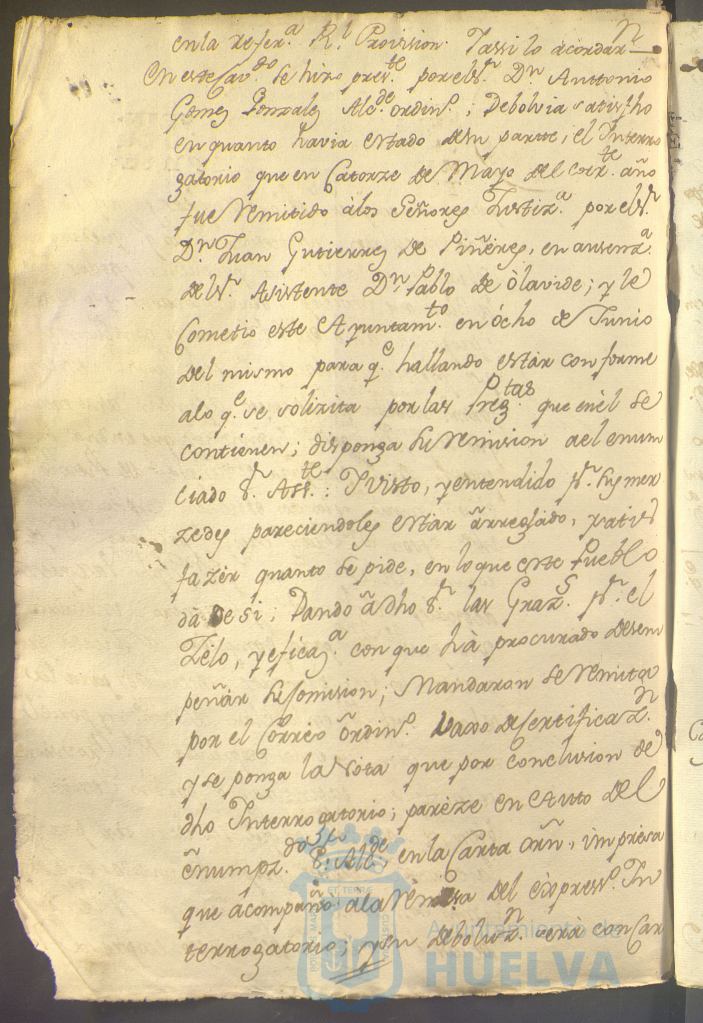 en la refer.ª R.l Provision. Yassi lo acordar.n
En este Cav.do se hizo pres.te por el S.r D.n Anttonio
Gomez Gonzalez Alc.de ordin.o; Debolvia satisfho
en quanto havia estado de su parte, el Interro
gatorio que en Catorze de Mayo del corr.te año
fue Remitido à los Señores Justiz.ª por el S.r
D.n Juan Gutierrez de Piñeres, en ausenz.ª
del S.r Asistente D.n Pablo de Olavide; y le
Cometio este Ayuntam.to en ócho de Junio
del mismo para q.e hallando estàr conforme
alo q.e se solizita por las Preg.tas que en èl se
contienen; disponga su Remision a el enun
ciado S.r Ass.te: Y visto, y entendido p.r sus mer
zedes pareciendoles estàr arreglado, y satis
fazèr quanto se pide, en lo que este Pueblo
dà de si; Dando a dho S.r las Graz.s p.r el
Zelo, y eficaz.ª con que hà procurado desem
peñàr su Comision; Mandaron se Remita
por el Correo ordin.o Vaxo de sertificaz.n
y se ponga la Nota que por conclusion de
dho Interrogatorio; parèze en Auto del
enumpz.do S.r Alc.de, en la Carta orn, impresa
que acompañò a la Remesa del expres.o In
terrogatorio; y su deboluz.n serà con Car
Ayuntamiento de
HUELVA